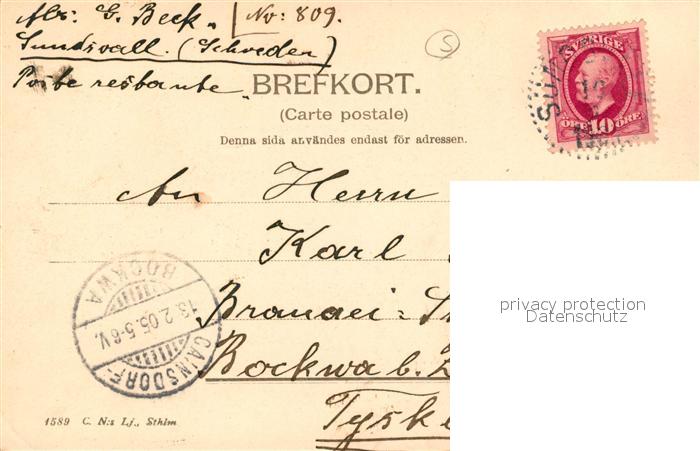 Abs: G. Beck. No: 809.
Sundsvall. (Schweden)
Poste restante.
BREFKORT.
(Carte postale)
Denna sida användes endast för adressen.
SVERIGE
ÖRE 10 ÖRE
SUN
An Herrn
Karl
Bockwa b. Z
Tyske
BOCKWA
13.2.05.5-6V.
CAINSDORF
S
privacy protection
Datenschutz
1589 C. N:s Lj., Sthlm